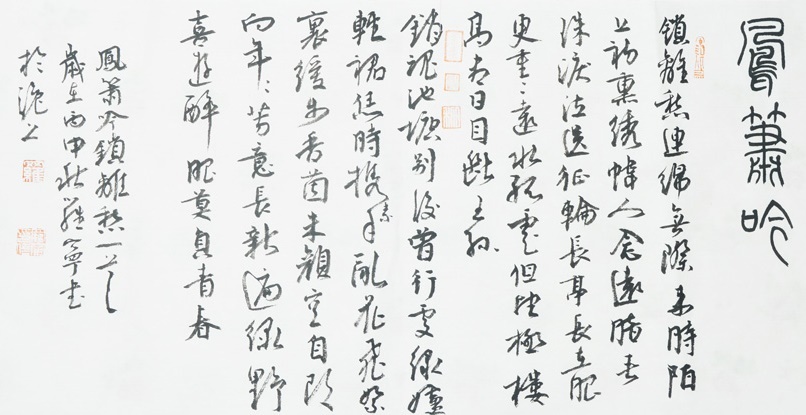 鳳簫吟
鎖離愁連綿無際來時陌
上初熏繡幃人念遠暗垂
珠淚泣送征輪長亭長在眼
更重々遠水孤雲但望極樓
高盡日目斷王孫
銷魂池塘別後曾行處綠妒
輕裙恁時攜素手亂花飛絮
裏緩步香茵朱顏空自改
向年々芳意長新遍綠野
喜遊醉眼莫負青春
鳳簫吟鎖離愁一首
歲在丙申秋寧書
於滬上